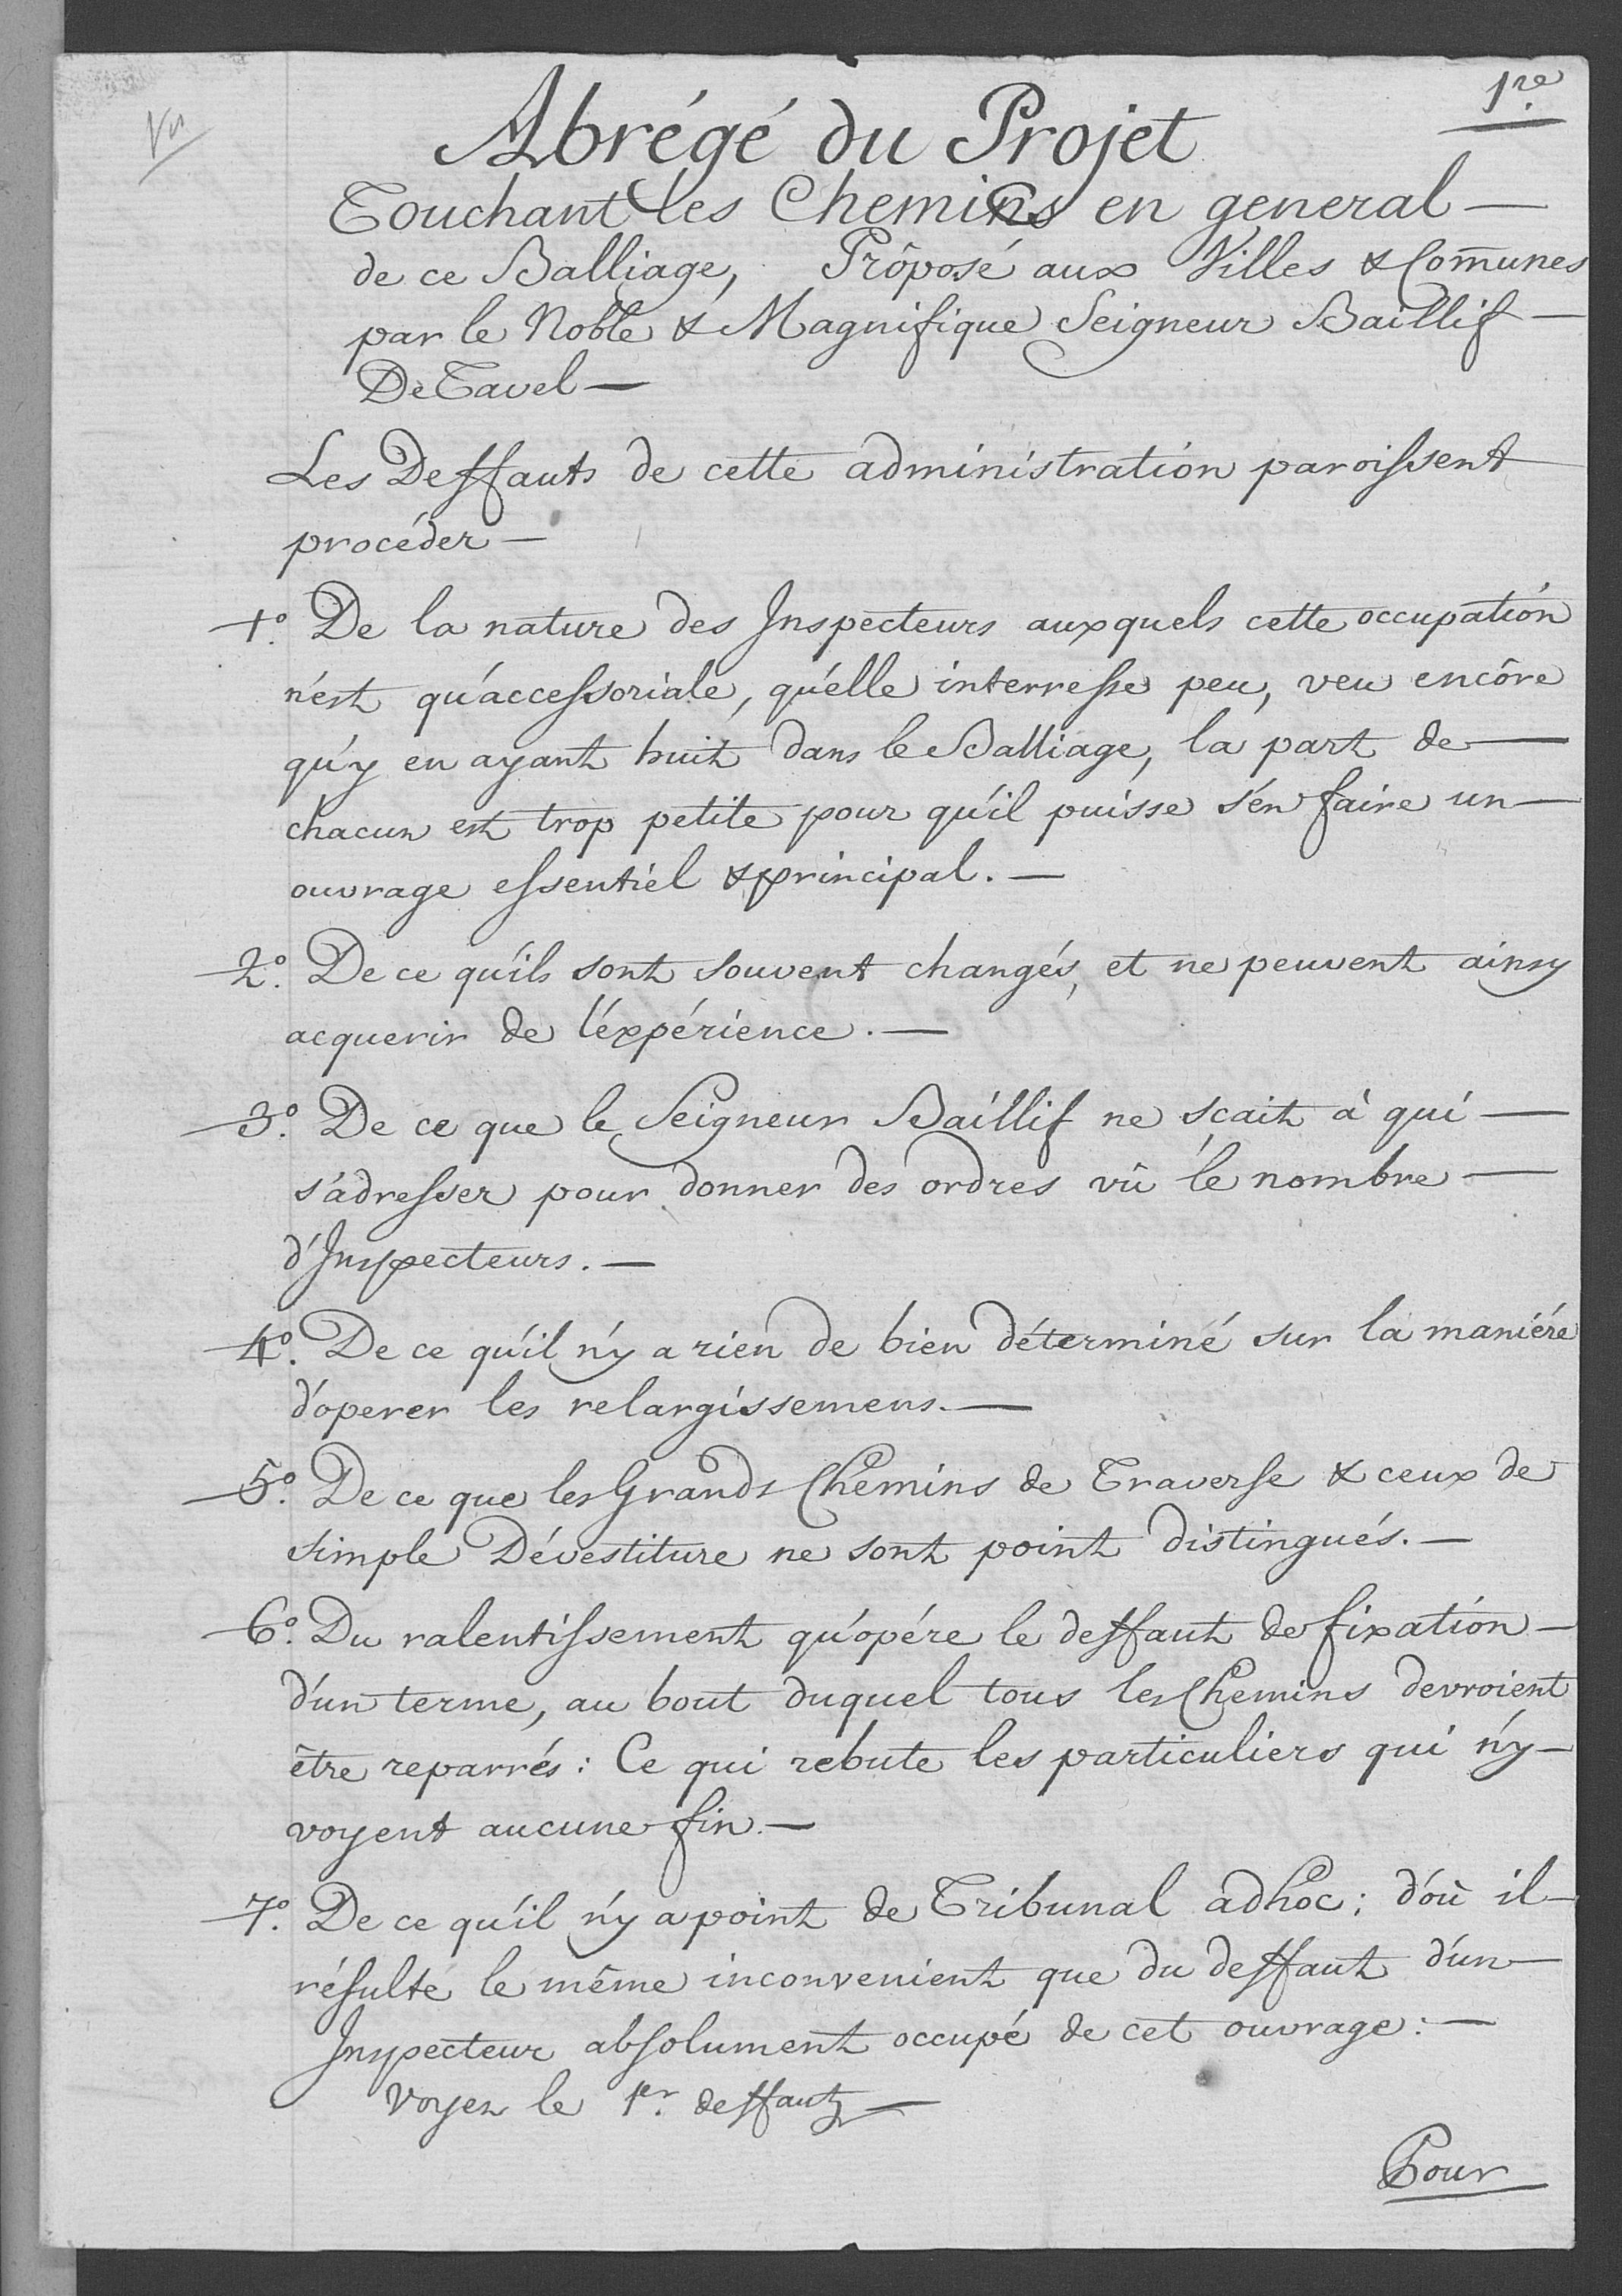 1.re
Vu
Abrégé du Projet
Touchant les Chemins en general —
de ce Balliage, Prôposé aux Villes & Com̄unes
par le Noble & Magnifique Seigneur Baillif —
De Tavel —
Les Deffauts de cette administration paroissent
procéder —
1.o De la nature des Inspecteurs auxquels cette occupation
n'est qu'accessoriale, qu'elle interresse peu, veu encôre
qu'y en ayant huit dans le Balliage, la part de —
chacun est trop petite pour qu'il puisse s'en faire un —
ouvrage essentiel & principal. —
2.o De ce qu'ils sont souvent changés, et ne peuvent ainsy
acquerir de l'éxpérience. —
3.o De ce que le Seigneur Baillif ne sçait à qui —
s'adresser pour donner des ordres vû le nombre —
d'Inspecteurs. —
4.o De ce qu'il n'y a rien de bien déterminé sur la maniére
d'operer les relargissemens. —
5.o De ce que les Grands Chemins de Traverse & ceux de
simple Dévestiture ne sont point distingués. —
6.o Du ralentissement qu'opére le deffaut de fixation —
d'un terme, au bout duquel tous les Chemins devroient
être reparrés : Ce qui rebute les particuliers qui n'y —
voyent aucune fin. —
7.o De ce qu'il n'y a point de Tribunal adhoc ; d'où il —
résulte le même inconvenient que du deffaut d'un —
Inspecteur absolument occupé de cet ouvrage : —
Voyez le 1.er deffaut —
Pour